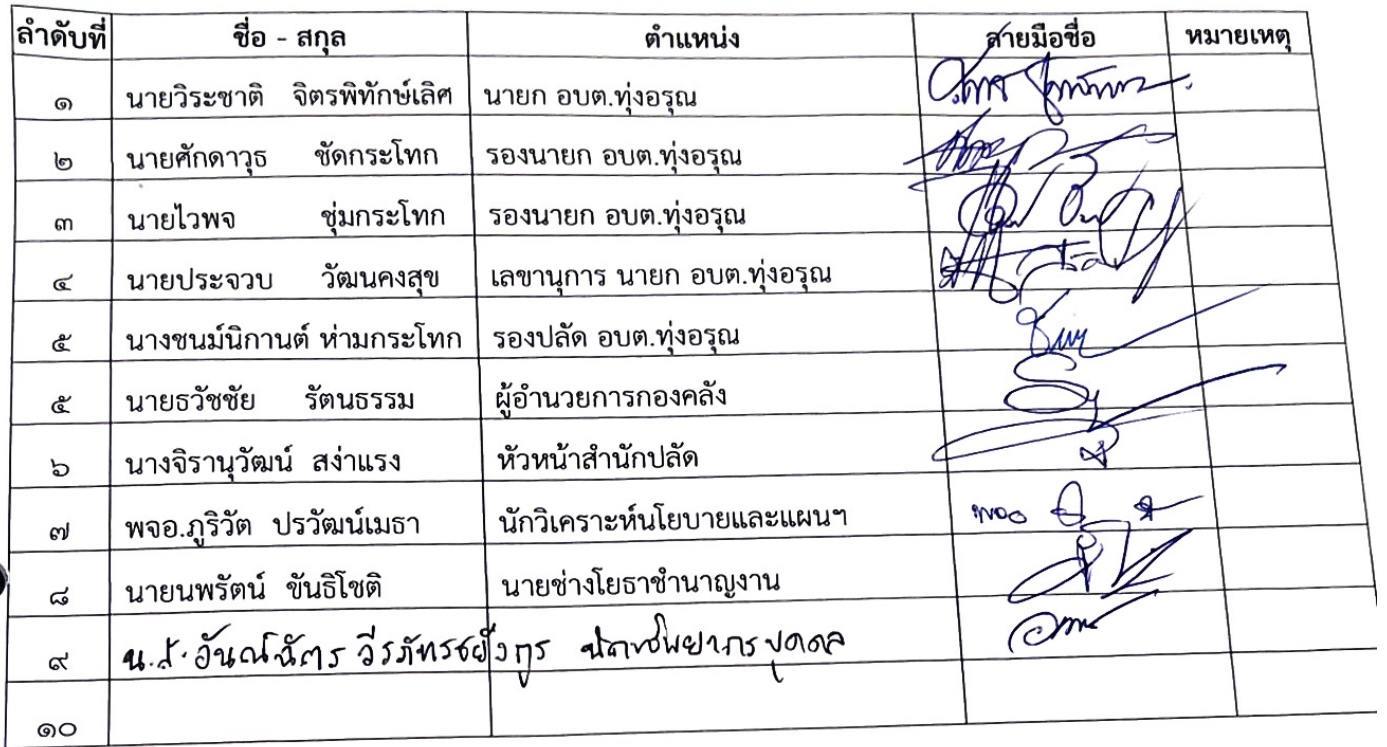 ลำดับที่ ชื่อ - สกุล ตำแหน่ง ลายมือชื่อ หมายเหตุ
๑ นายวิระชาติ จิตรพิทักษ์เลิศ นายก อบต.ทุ่งอรุณ
๒ นายศักดาวุธ ชัดกระโทก รองนายก อบต.ทุ่งอรุณ
๓ นายไวพจ ชุ่มกระโทก รองนายก อบต.ทุ่งอรุณ
๔ นายประจวบ วัฒนคงสุข เลขานุการ นายก อบต.ทุ่งอรุณ
๕ นางชนม์นิกานต์ ห่ามกระโทก รองปลัด อบต.ทุ่งอรุณ
๕ นายธวัชชัย รัตนธรรม ผู้อำนวยการกองคลัง
๖ นางจิรานุวัฒน์ สง่าแรง หัวหน้าสำนักปลัด
๗ พจอ.ภูริวัต ปรวัฒน์เมธา นักวิเคราะห์นโยบายและแผนฯ
๘ นายนพรัตน์ ขันธิโชติ นายช่างโยธาชำนาญงาน
๙ น.ส. นักทรัพยากรบุคคล
๑๐